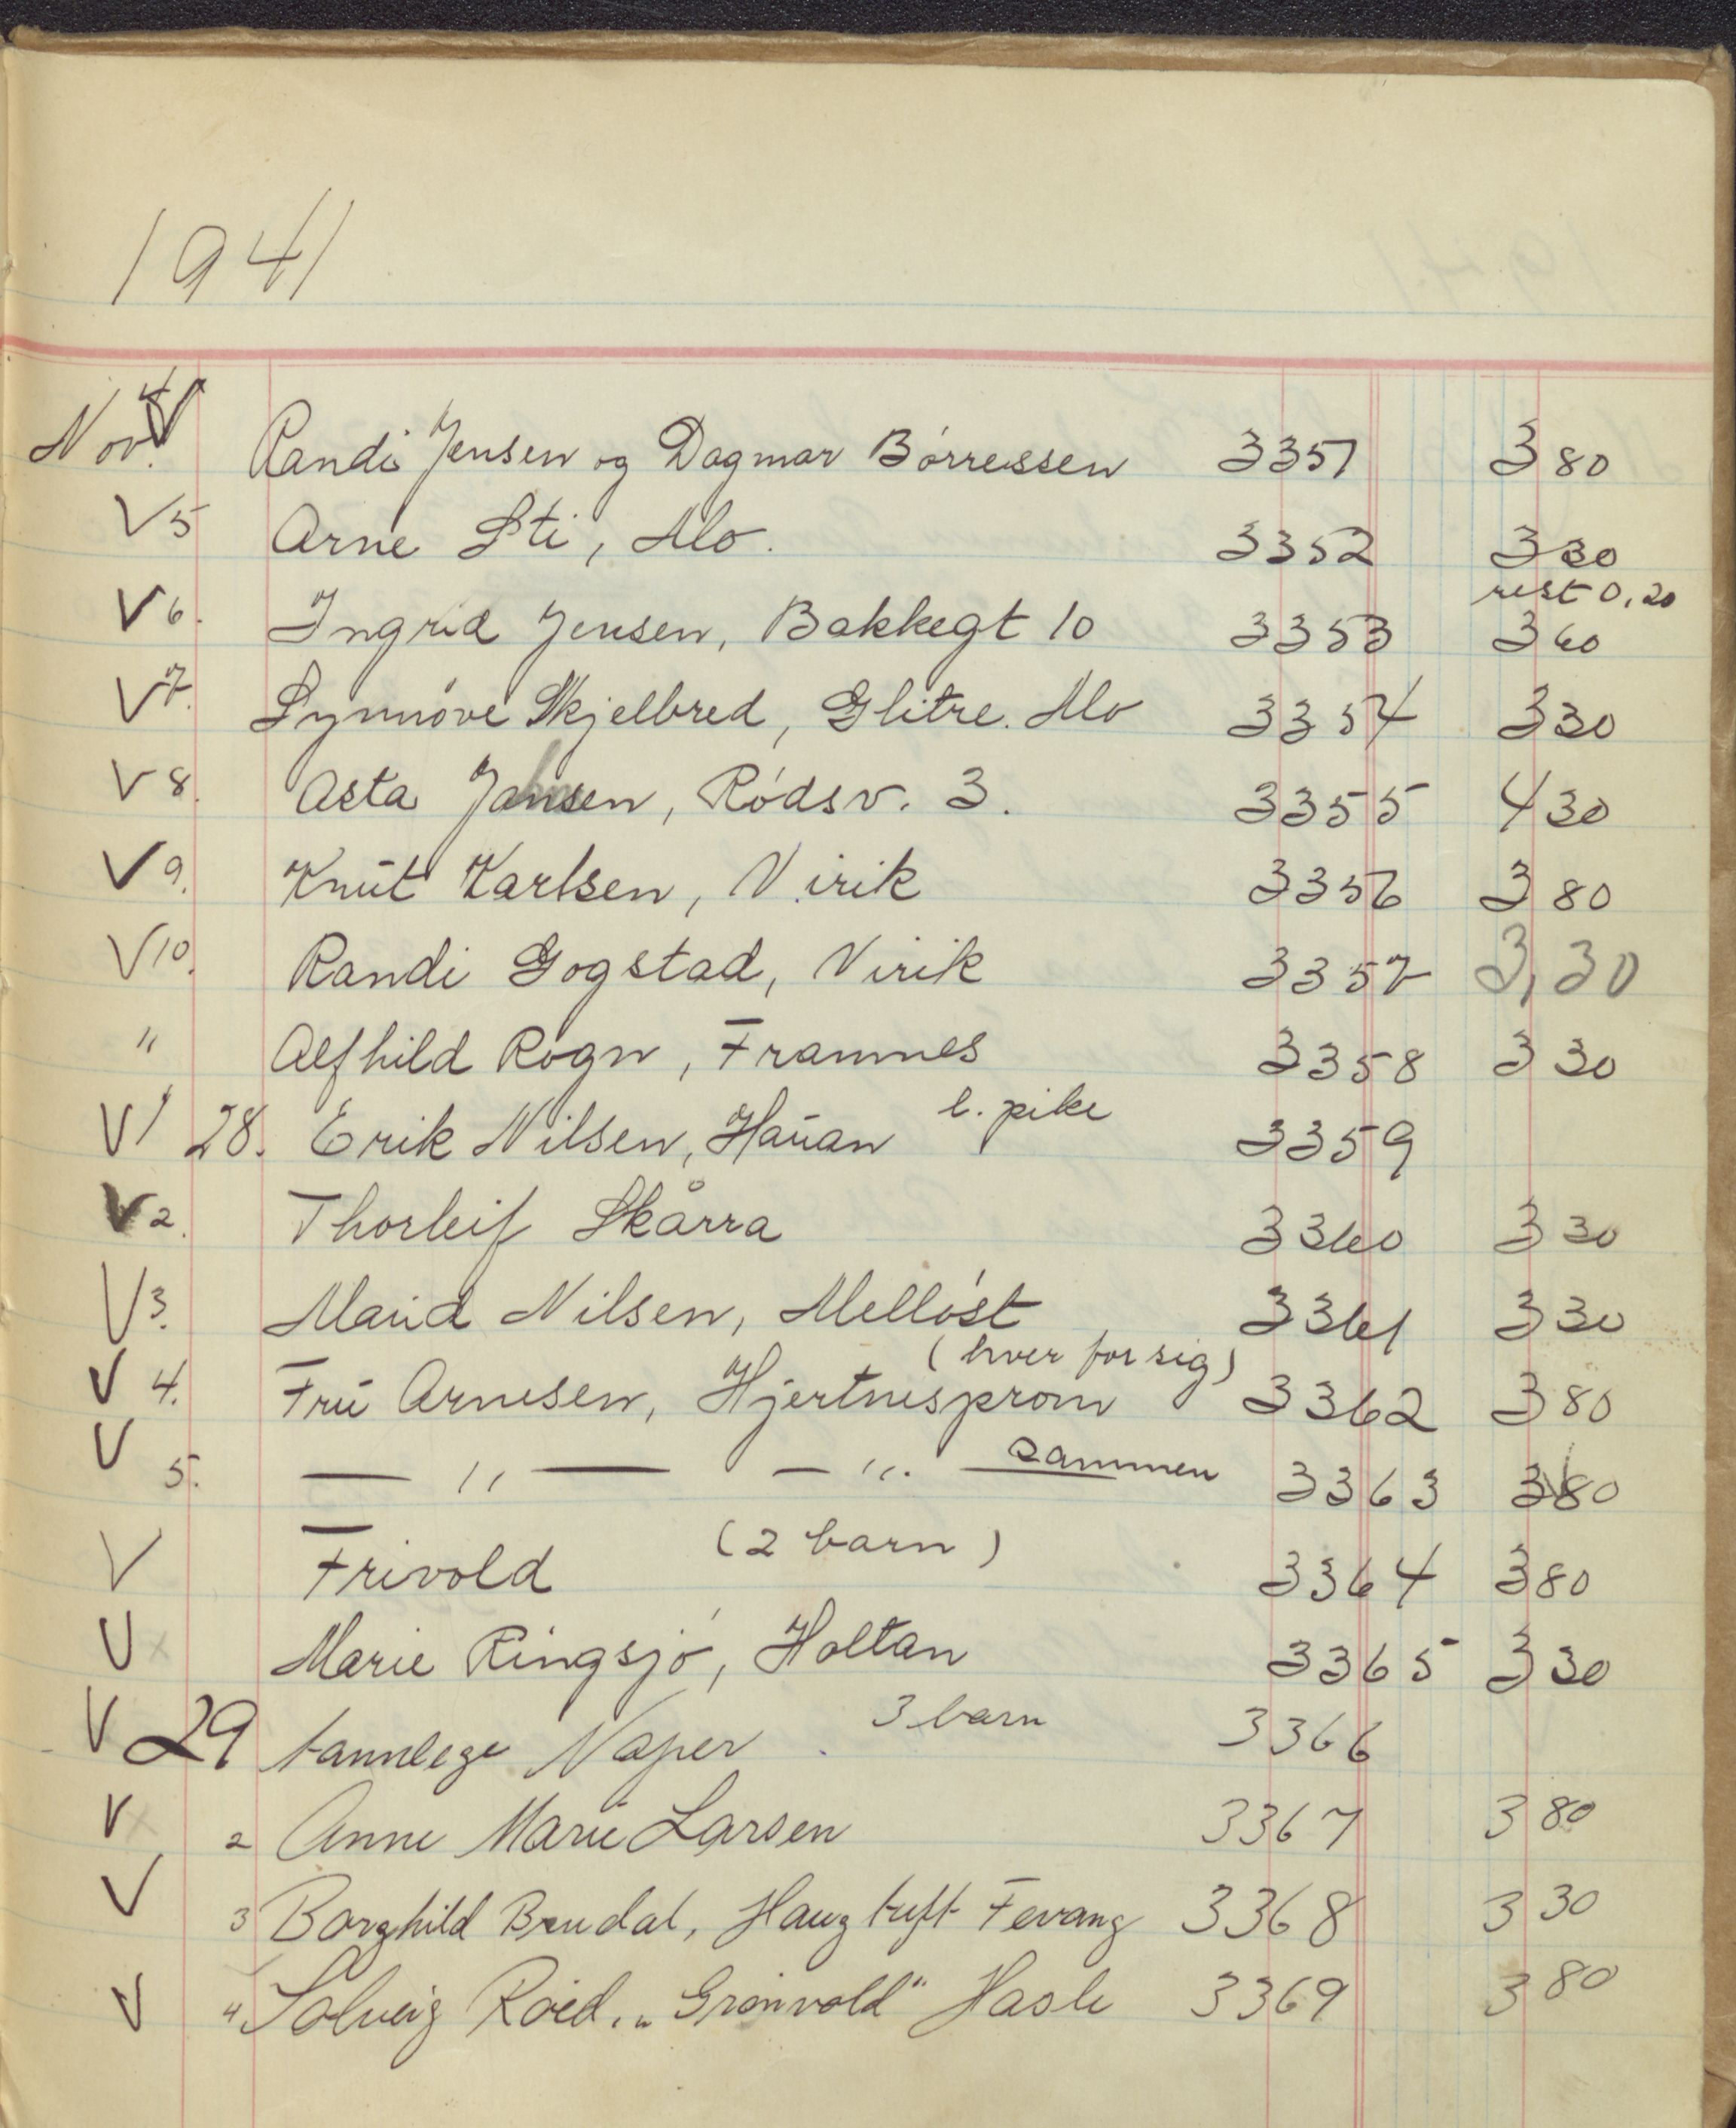 1941
Nov. 4 V Randi Jensen og Dagmar Børressen 3351 3 80
V 5 Arne Sti, Mo. 3352 3 30
rest 0,20
V 6. Ingrid Jensen, Bakkegt 10 3353 3 60
V 7. Synnøve Skjelbred, Glitre. Mo 3354 3 30
V 8. Asta Jansen, Rødsv. 3. 3355 4 30
V 9. Knut Karlsen, Virik 3356 3 80
V 10. Randi Gogstad, Virik 3357 3,30
" Alfhild Rogn, Framnes 3358 3 30
V 1 28. Erik Nilsen, Hauan l. pike 3359
V 2. Thorleif Skårra 3360 3 30
V 3. Maud Nilsen, Melløst 3361 3 30
V 4. Fru Arnesen, Hjertnesprom (hver for sig) 3362 3 80
V 5. — " — — ". sammen 3363 3 80
V Frivold (2 barn) 3364 3 80
V x Marie Ringsjø, Holtan 3365 3 30
V 29 tannlege Naper 3 barn 3366
V x 2 Anne Marie Larsen 3367 3 80
V 3 Borghild Brudal, Haugtuft Fevang 3368 3 30
V 4 Solveig Roed, "Grønvold" Hasle 3369 3 80